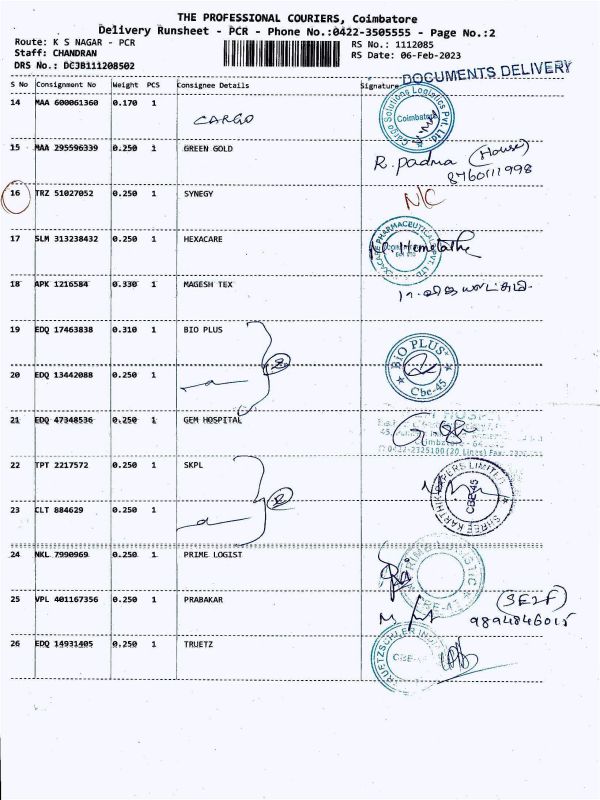 THE PROFESSIONAL COURIERS, Coimbatore
Delivery Runsheet - PCR - Phone No.:0422-3505555 - Page No.:2
Route: K S NAGAR - PCR RS No.: 1112085
Staff: CHANDRAN RS Date: 06-Feb-2023
DRS No.: DCJB111208502
DOCUMENTS DELIVERY
S No Consignment No Weight PCS Consignee Details Signature
14 MAA 600061360 0.170 1 CARGO
Cargo Solutions Logistics Pvt. Ltd. Coimbatore
15 MAA 295596339 0.250 1 GREEN GOLD R. Padma (House)
8760111998
16 TRZ 51027052 0.250 1 SYNEGY N/C
17 SLM 313238432 0.250 1 HEXACARE
18 APK 1216584 0.330 1 MAGESH TEX
19 EDQ 17463838 0.310 1 BIO PLUS
BIO PLUS Cbe-45
20 EDQ 13442088 0.250 1
21 EDQ 47348536 0.250 1 GEM HOSPITAL
22 TPT 2217572 0.250 1 SKPL
SHREE KARTHIK PAPERS LIMITED CBE-45
23 CLT 884629 0.250 1
24 NKL 7990969 0.250 1 PRIME LOGIST
25 VPL 401167356 0.250 1 PRABAKAR (SELF)
9894846015
26 EDQ 14931405 0.250 1 TRUETZ